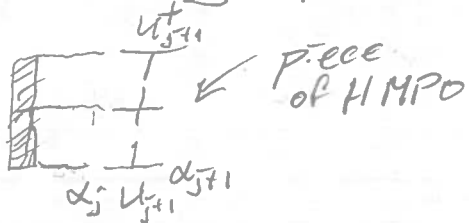 U†j+1
piece
of H MPO
αj Uj+1 αj+1